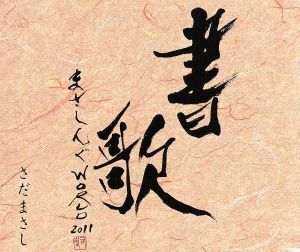 書歌
まさしんぐWORLD 2011
さだまさし